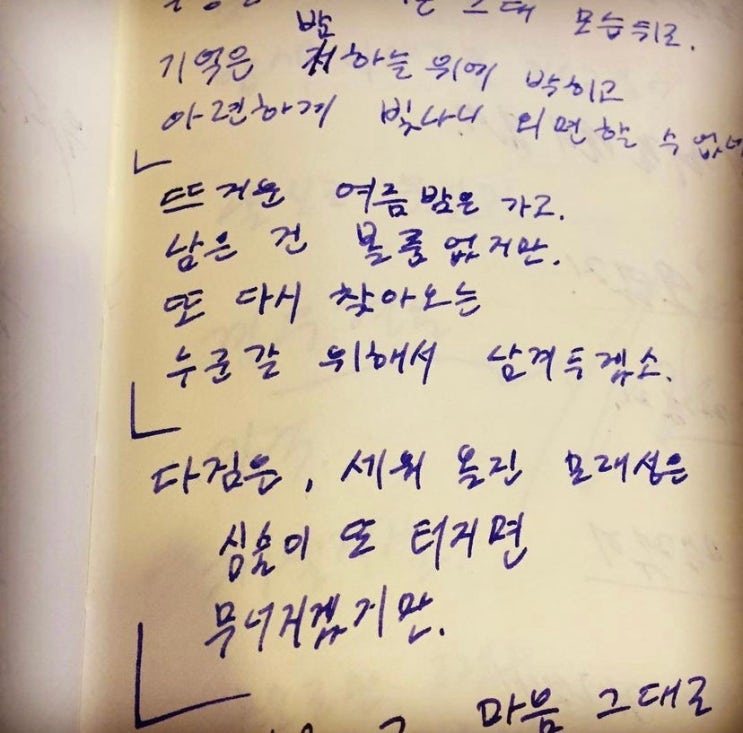 그대 모습 뒤로.
밤
기억은 하늘 위에 박히고
아련하게 빛나니 외면할 수 없네
뜨거운 여름밤은 가고.
남은 건 볼품없지만.
또 다시 찾아오는
누군갈 위해서 남겨두겠소.
다짐은, 세워 올린 모래성은
심술이 또 터지면
무너지겠지만.
마음 그대로